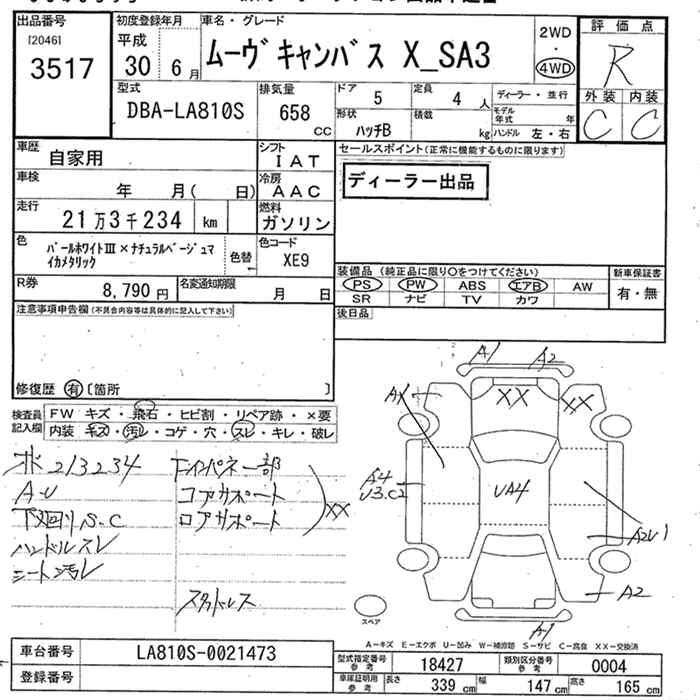 出品番号
[2046]
3517
初度登録年月
平成
30 6月
車名・グレード
ムーヴキャンバス X_SA3
2WD
・
4WD
評価点
R
外装 内装
C C
型式
DBA-LA810S
排気量
658
CC
ドア
5
定員
4人
形状
ハッチB
積載
kg
ディーラー・並行
モデル年式 年
ハンドル 左・右
車歴
自家用
シフト
IAT
車検
年 月( 日)
冷房
AAC
走行
21万3千234 km
燃料
ガソリン
色
パールホワイトIII×ナチュラルベージュマ
イカメタリック
色替
色コード
XE9
R券
8,790円
名変通知期限
月 日
セールスポイント(正常に機能するものに限ります)
ディーラー出品
装備品(純正品に限り〇をつけてください)
PS PW ABS エアB AW
SR ナビ TV カワ
新車保証書
有・無
後日品
注意事項申告欄(不具合内容等は具体的に記入して下さい)
修復歴 有〔箇所 〕
検査員
記入欄
FW キズ・飛石・ヒビ割・リペア跡・×要
内装 キズ・汚レ・コゲ・穴・スレ・キレ・破レ
213234
A-U
下廻りS.C
ハンドルスレ
シート汚レ
Fインパネ一部
コアサポート
ロアサポート
XX
スタットレス
A1 A2
A1
XX XX
A4
U3.C2
UA4
A2U1
A2
A1
スペア
A-キズ E-エクボ U-凹み W-補修跡 S-サビ C-腐食 XX-交換済
車台番号
LA810S-0021473
登録番号
型式指定番号
参考
18427
類別区分番号
参考
0004
車庫証明用
参考
長さ
339cm
幅
147cm
高さ
165cm